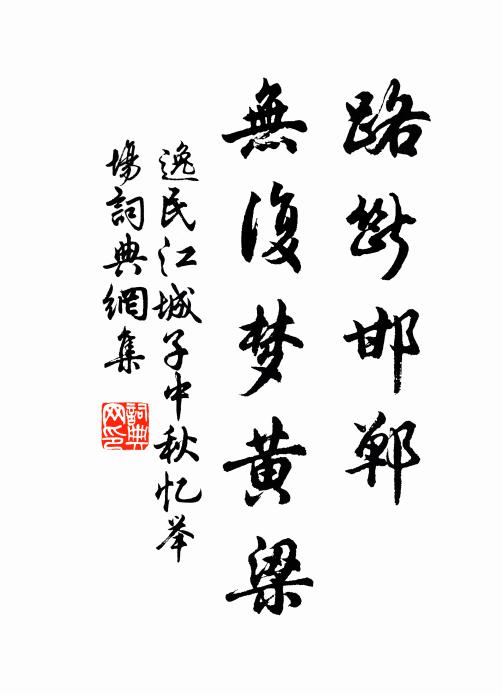 路断邯郸
無復梦黄梁
逸民江城子中秋忆举
場詞典網集
詞典
网印